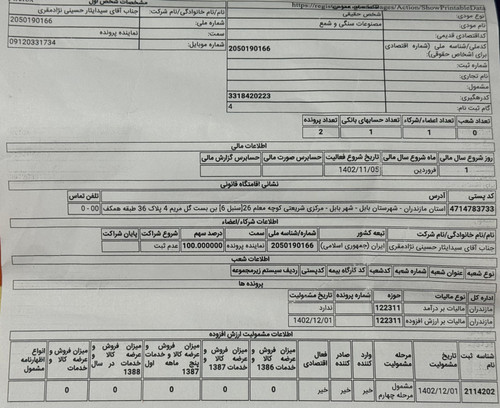 https://regis ages/Action/ShowPrintableData
مشخصات شخص اول
نام/نام خانوادگی/نام شرکت: جناب آقای سیدایثار حسینی نژادمقری
شماره ملی: 2050190166
سمت: نماینده پرونده
شماره موبایل: 09120331734
نوع مودی: شخص حقیقی
نام مودی: مصنوعات سنگی و شمع
کداقتصادی قدیمی:
کدملی/شناسه ملی (شماره اقتصادی برای اشخاص حقوقی): 2050190166
شماره ثبت:
نام تجاری:
مشمول:
کدرهگیری: 3318420223
گام ثبت نام: 4
تعداد شعب تعداد اعضاء/شرکاء تعداد حسابهای بانکی تعداد پرونده
0 1 1 2
اطلاعات مالی
روز شروع سال مالی ماه شروع سال مالی تاریخ شروع فعالیت حسابرس صورت مالی حسابرس گزارش مالی
1 فروردین 1402/11/05
نشانی اقامتگاه قانونی
کد پستی آدرس تلفن تماس
4714783733 استان مازندران - شهرستان بابل - شهر بابل - مرکزی شریعتی کوچه معلم 26[سنبل 6] بن بست گل مریم 4 پلاک 36 طبقه همکف 00 - 0
اطلاعات شرکاء/اعضاء
نام/نام خانوادگی/نام شرکت تبعه کشور شماره/شناسه ملی سمت درصد سهم شروع شراکت پایان شراکت
جناب آقای سیدایثار حسینی نژادمقری ایران (جمهوری اسلامی) 2050190166 نماینده پرونده 100.000000 عدم ثبت
اطلاعات شعب
نوع شعبه عنوان شعبه شماره شعبه کدشعبه کد کارگاه بیمه کدپستی ردیف سیستم زیرمجموعه
پرونده ها
اداره کل نوع مالیات حوزه شماره پرونده تاریخ مشمولیت
مازندران مالیات بر درآمد 122311 ندارد
مازندران مالیات بر ارزش افزوده 122311 1402/12/01
اطلاعات مشمولیت ارزش افزوده
شناسه ثبت نام تاریخ مشمولیت مرحله مشمولیت وارد کننده صادر کننده فعال اقتصادی میزان فروش و عرضه کالا و خدمات 1386 میزان فروش و عرضه کالا و خدمات 1387 میزان فروش و عرضه کالا و خدمات پنج ماهه اول 1387 میزان فروش و عرضه کالا و خدمات در سال 1388 میزان فروش و عرضه کالا و خدمات انواع اظهارنامه مشمول
2114202 1402/12/01 مشمول مرحله چهارم خیر خیر خیر 0 0 0 0 0